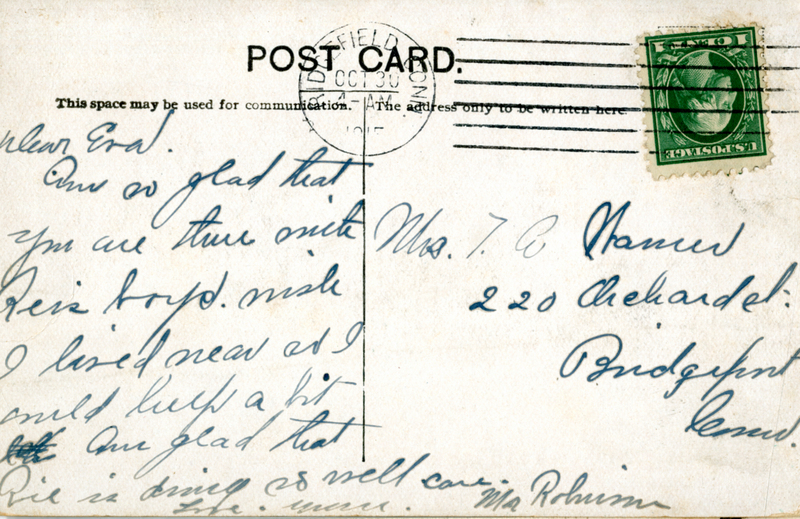 POST CARD.
RIDGEFIELD CONN.
OCT 30
4-AM
1915
ONE 1 CENT
U.S. POSTAGE
This space may be used for communication.
The address only to be written here.
Dear Eva.
Am so glad that
you are there with
boys. wish
I lived near so I
could help a bit
Am glad that
is doing so well
Love.
Robinson
Mrs. T.
220 Orchard st.
Bridgeport
Conn.